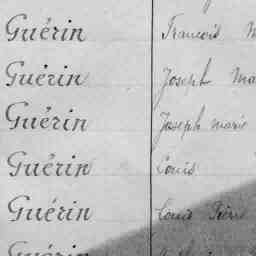 Guérin François M
Guérin Joseph Ma
Guérin Joseph marie
Guérin Louis
Guérin Louis Pierre
Guérin